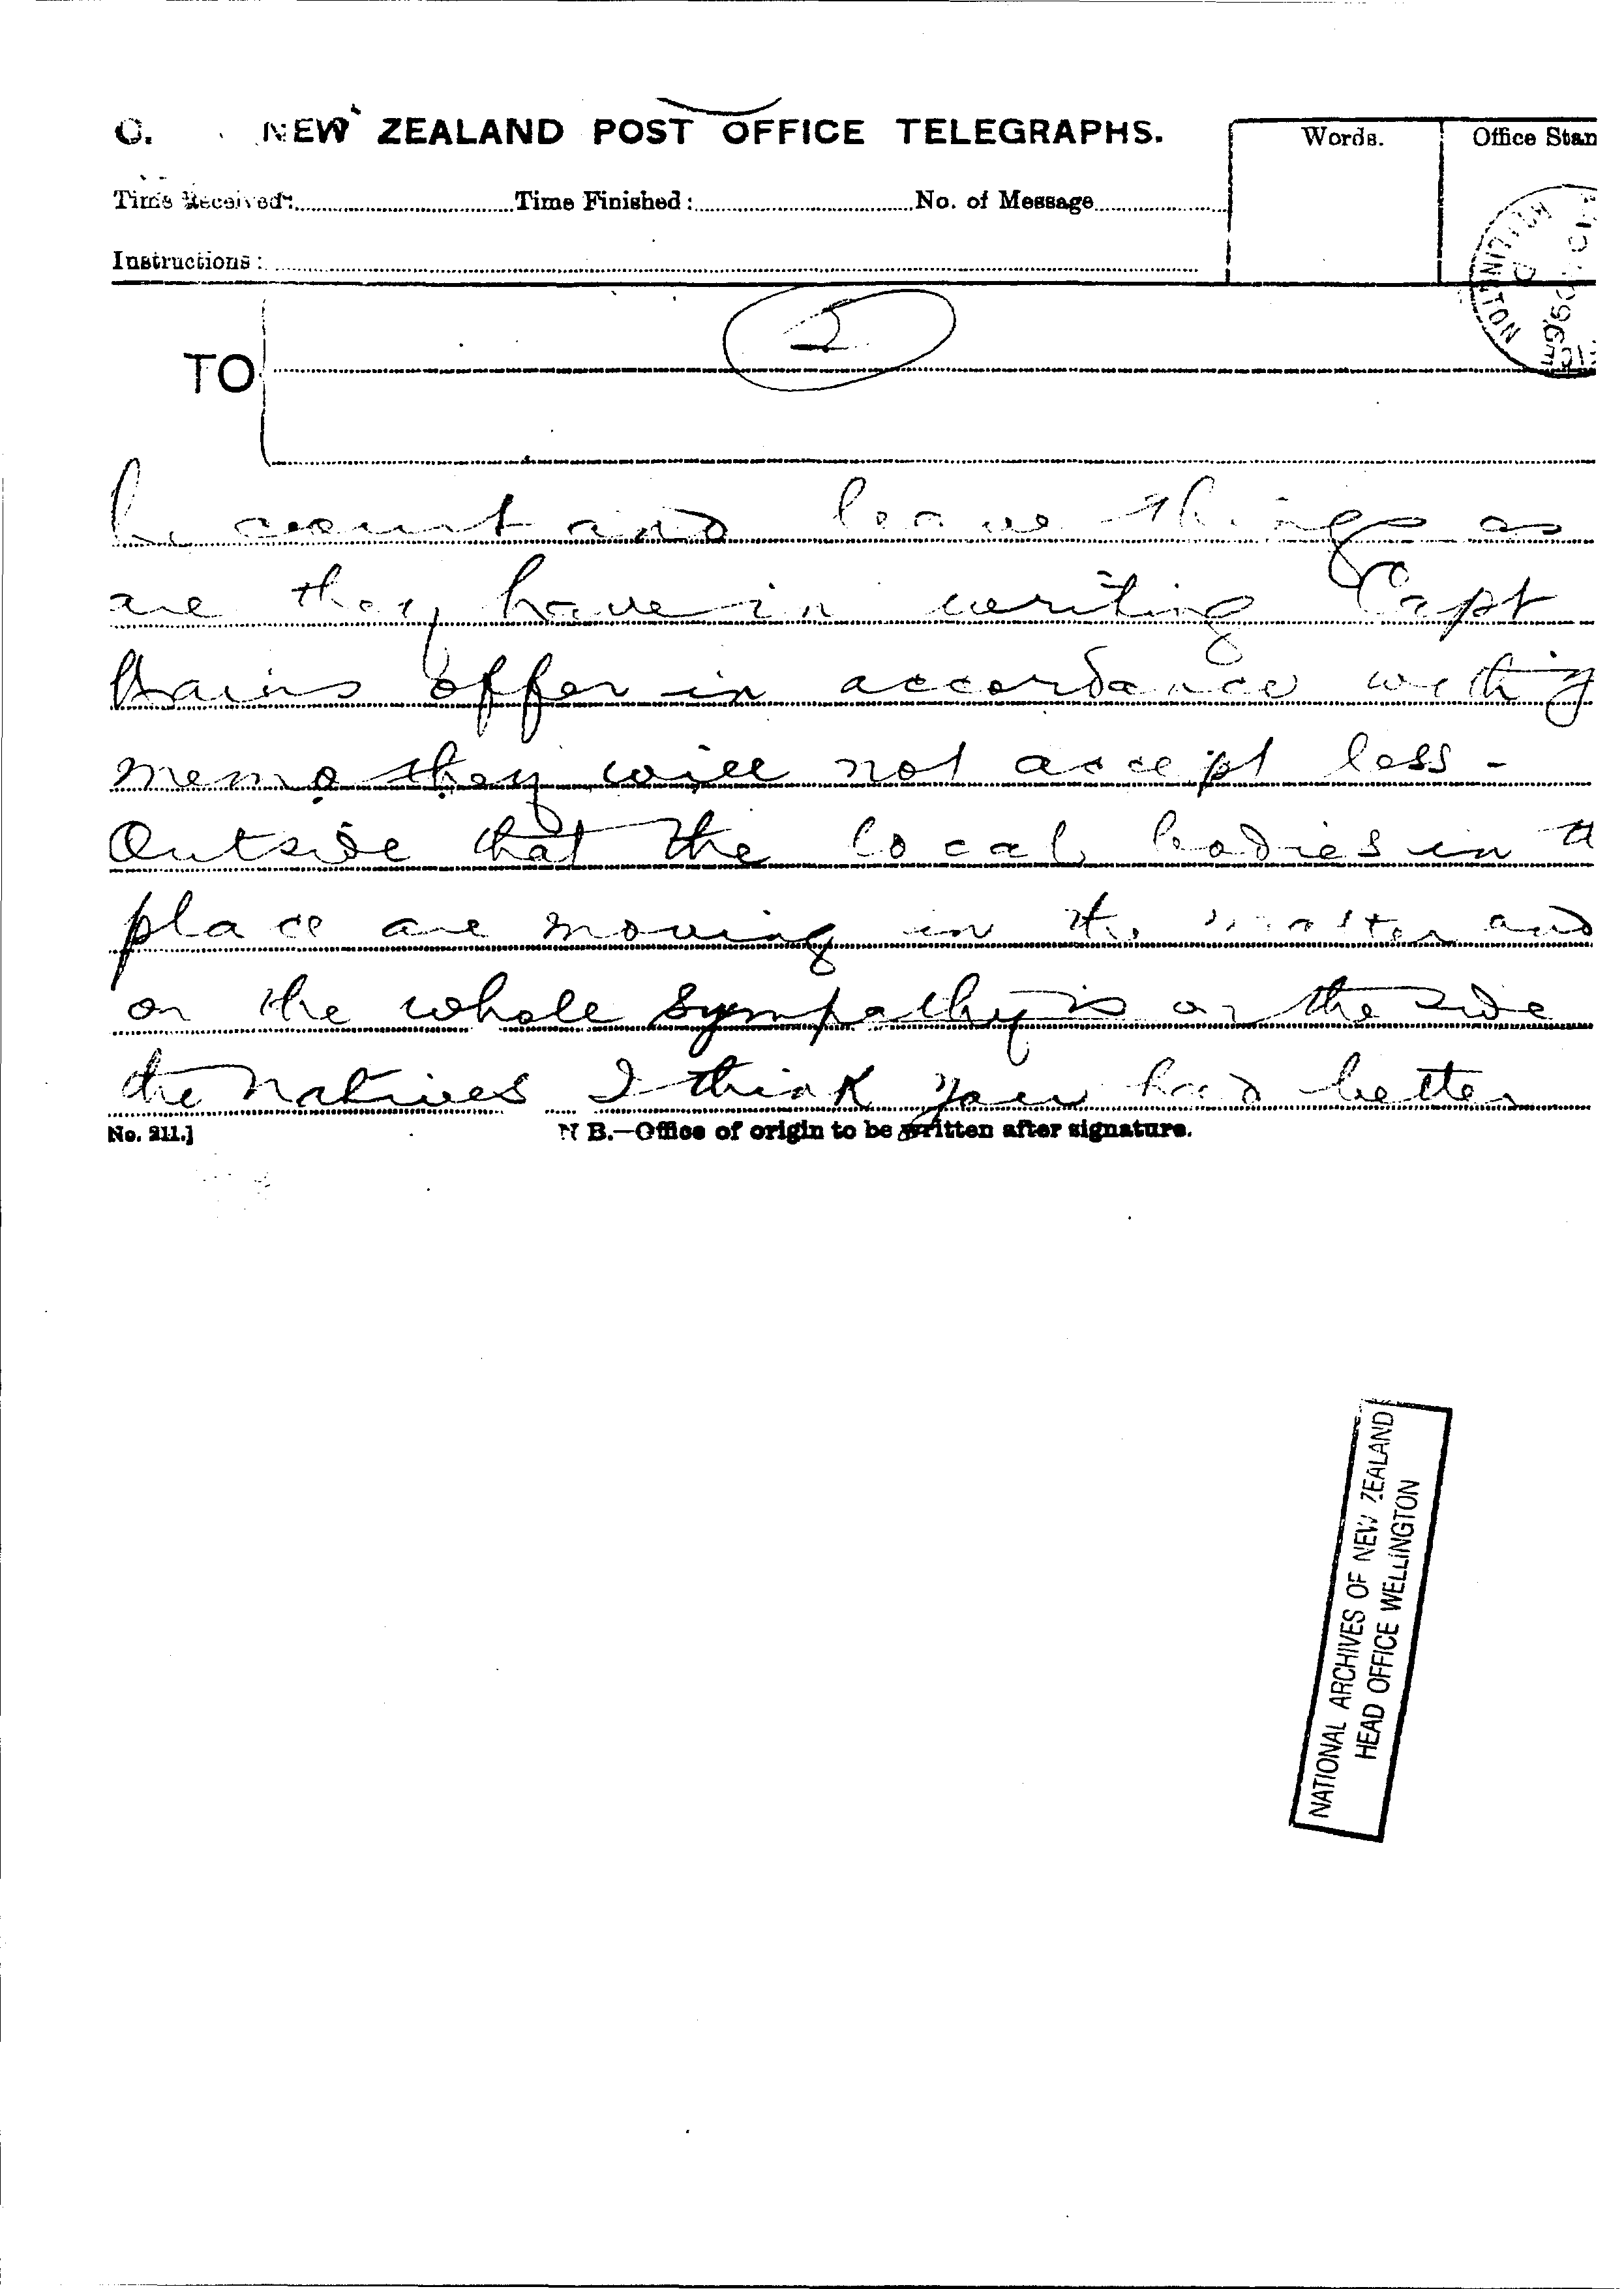 G. NEW ZEALAND POST OFFICE TELEGRAPHS.
Words.
Office Stam
Time Received: Time Finished: No. of Message
Instructions:
WELLINGTON
2
TO
account and leave things as
are they have in writing Capt
offer in accordance with
memo they will not accept less -
Outside that the local bodies in t
place are moving in the matter and
on the whole sympathy is on the side
the natives I think you had better
No. 211.] N B.—Office of origin to be written after signature.
NATIONAL ARCHIVES OF NEW ZEALAND
HEAD OFFICE WELLINGTON